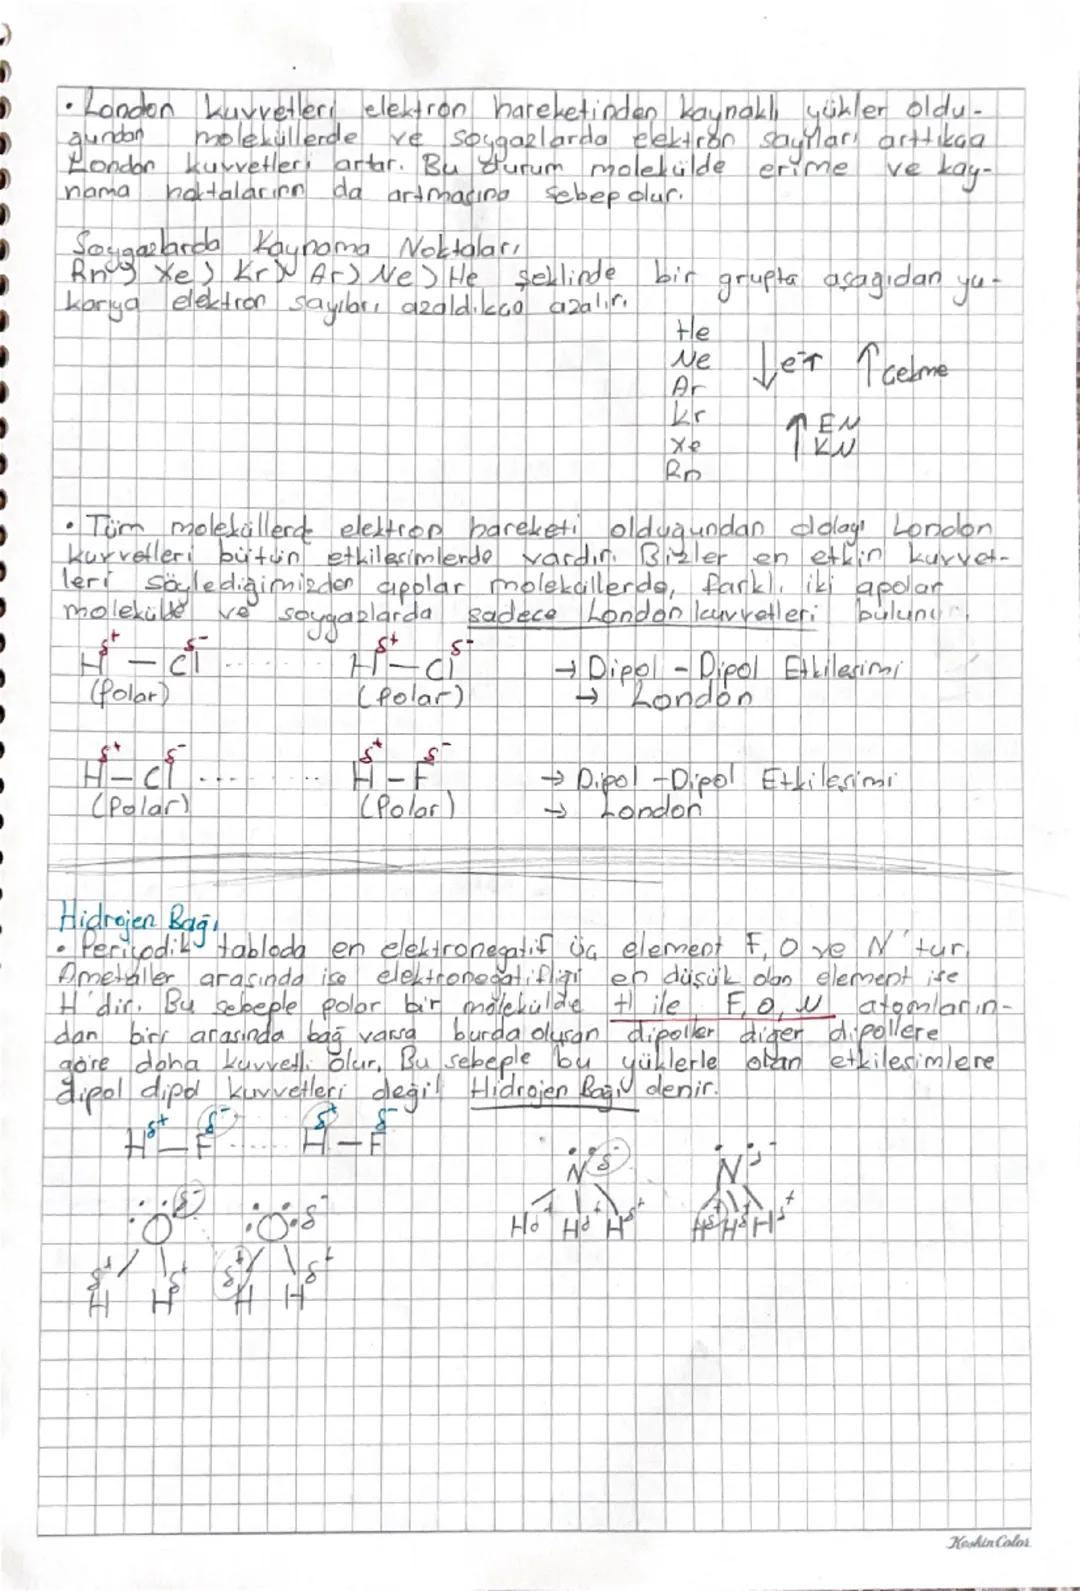 • London kuvvetleri elektron hareketinden kaynaklı yükler oldu-
ğundan moleküllerde ve soygazlarda elektron sayıları arttıkça
London kuvvetleri artar. Bu durum molekülde erime ve kay-
nama noktalarının da artmasına sebep olur.
Soygazlarda Kaynama Noktaları
Rn > Xe > Kr > Ar > Ne > He şeklinde bir grupta aşağıdan yu-
karıya elektron sayıları azaldıkça azalır.
He
Ne ↓ e⁻↑ ↑ çekme
Ar
Kr ↑ EN
Xe KN
Rn
• Tüm moleküllerde elektron hareketi olduğundan dolayı London
kuvvetleri bütün etkileşimlerde vardır. Bizler en etkin kuvvet-
leri söylediğimizden apolar moleküllerde, farklı iki apolar
molekülde ve soygazlarda sadece London kuvvetleri bulunur.
δ+ δ- δ+ δ-
H — Cl ........ H — Cl → Dipol - Dipol Etkileşimi
(Polar) (Polar) → London
δ+ δ- δ+ δ-
H — Cl ........ H — F → Dipol - Dipol Etkileşimi
(Polar) (Polar) → London
Hidrojen Bağı
• Periyodik tabloda en elektronegatif üç element F, O ve N'tur.
Ametaller arasında ise elektronegatifliği en düşük olan element ise
H'dir. Bu sebeple polar bir molekülde H ile F, O, N atomların-
dan biri arasında bağ varsa burda oluşan dipoller diğer dipollere
göre daha kuvvetli olur. Bu sebeple bu yüklerle olan etkileşimlere
dipol dipol kuvvetleri değil Hidrojen Bağı denir.
δ+ δ- δ+ δ-
H — F ........ H — F
N δ- N δ-
O δ- O δ-
H δ+ H δ+ H δ+ H δ+ H δ+ H δ+
δ+ δ+ δ+ δ+
H H H H
Keskin Color